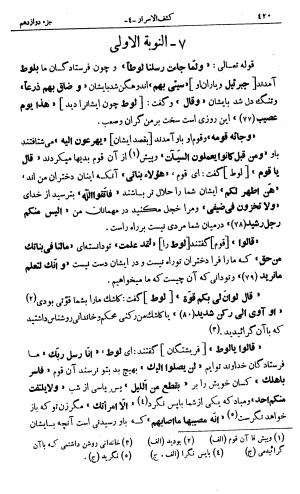 ۴۲۰ کشف الاسرار -۴- جزء دوازدهم
۷ - النوبة الاولى
قوله تعالی : «ولما جاءت رسلنا لوطاً» و چون فرستادگان ما بلوط
آمدند [جبرئیل و یاران او] «سیئ بهم» اندوهگن شد بایشان «و ضاق بهم ذرعاً»،
وتنگ دل شد بایشان «وقال» وگفت : [لوط چون ایشانرا دید] «هذا یوم
عصیب (۷۷)» این روزی است سخت برمن گران وصعب.
«وجاءه قومه» وقوم او باو آمدند [بقصد ایشان] «یهرعون الیه» می‌شتافتند
باو «ومن قبل کانوا یعملون السیئات» وپیش(۱) از آن قوم بدیها میکردند «قال
یا قوم» [لوط] گفت: ای قوم، «هؤلاء بناتی» آنکه اینان دختران من‌اند،
«هن اطهر لکم» ایشان شما را حلال تر باشند «فاتقوا الله» بترسید از خدای
«ولا تخزون فی ضیفی» ومرا خجل مکنید در مهمانان من «الیس منکم
رجل رشید (۷۸)» درمیان شما مردی نیست براه راست.
«قالوا» [قوم] گفتند [لوط را] «لقد علمت» تو دانسته‌ای «مالنا فی بناتک
من حق» که ما را فرا دختران تو راه نیست و در ایشان دست نیست «و انک لتعلم
مانرید (۷۹)» وتو دانی که آن چیست که ما میخواهیم.
«قال لو ان لی بکم قوة» [لوط] گفت: کاشك مارا بشما قوّتی بودی (۲)
«او آوی الی رکن شدید (۸۰)» یا کاشك من رکنی محکم وخاندانی روشناس داشتید
که با آن گرائیدی (۳).
«قالوا یا لوط» [فریشتگان] گفتند: ای لوط، «انّا رسل ربّك» ما
فرستادگان خداوند توایم «لن یصلوا الیك» بهیچ بد بتو نرسند آن قوم «فاسر
باهلك» کسان خویش را بر «بقطع من اللیل» پس پاسی از شب «ولایلتفت
منکم احد» ومبادا که یکی از شما با پس نگرد(۴) «الا امراتك» مگر زن تو که باز
خواهد نگرست(۵) «انه مصیبها ما اصابهم» که باو رسیدنی است آنچه بایشان
(۱) وپیش فا آن قوم (الف) (۲) بودید (الف) (۳) خاندانی روشن داشتمی که باآن
گرائیدمی (ج) (۴) باپس نگرا (الف، ج) (۵) نگرید (ج)